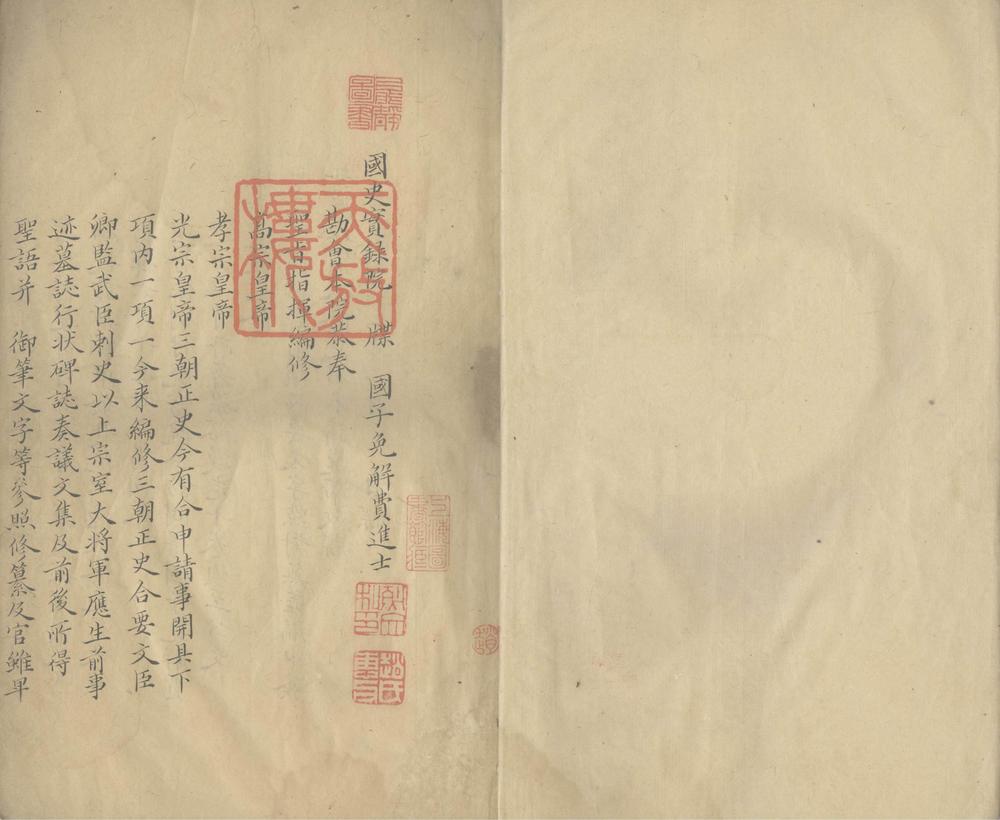 國史實錄院　牒　國子免解費進士
勘會本院恭奉
聖旨指揮編修
高宗皇帝
孝宗皇帝
光宗皇帝三朝正史今有合申請事開具下
項内一項一今来編修三朝正史合要文臣
卿監武臣刺史以上宗室大将軍應生前事
迹墓誌行状碑誌奏議文集及前後所得
聖語并　御筆文字等參照修纂及官雖卑
天放樓
趙